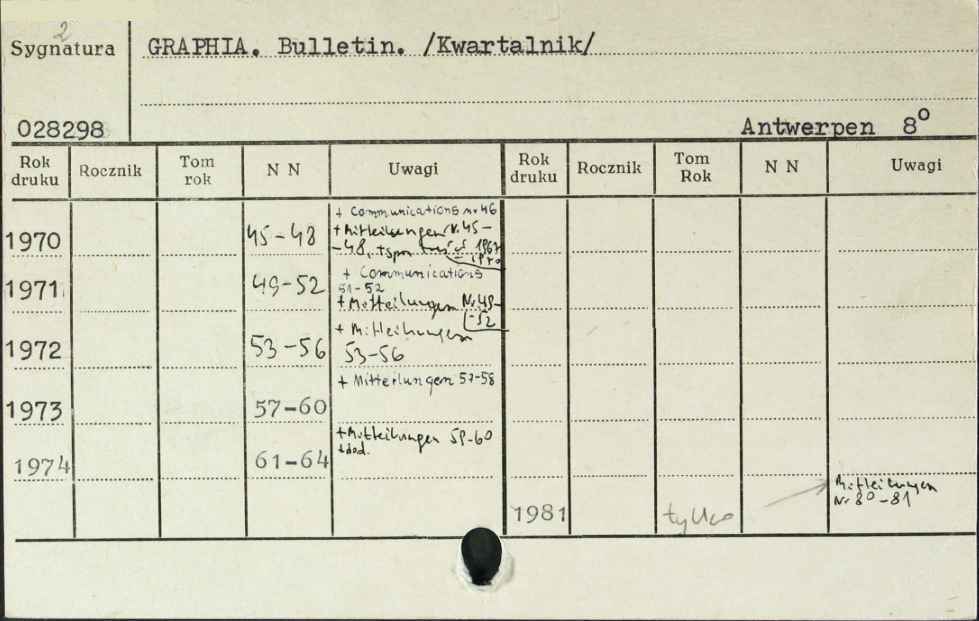 2
Sygnatura
GRAPHIA. Bulletin. /Kwartalnik/
028298
Antwerpen 8º
Rok druku Rocznik Tom rok N N Uwagi Rok druku Rocznik Tom Rok N N Uwagi
+ Communications nr 46
1970 45-48 + Mitteilungen Nr 45-
-48, + spis treści 1967
- 1970
+ Communications
1971 49-52 51-52
+ Mitteilungen Nr 49-
-52
+ Mitteilungen
1972 53-56 53-56
+ Mitteilungen 57-58
1973 57-60
+ Mitteilungen 59-60
+ dod.
1974 61-64
Mitteilungen
Nr 80-81
1981 tylko